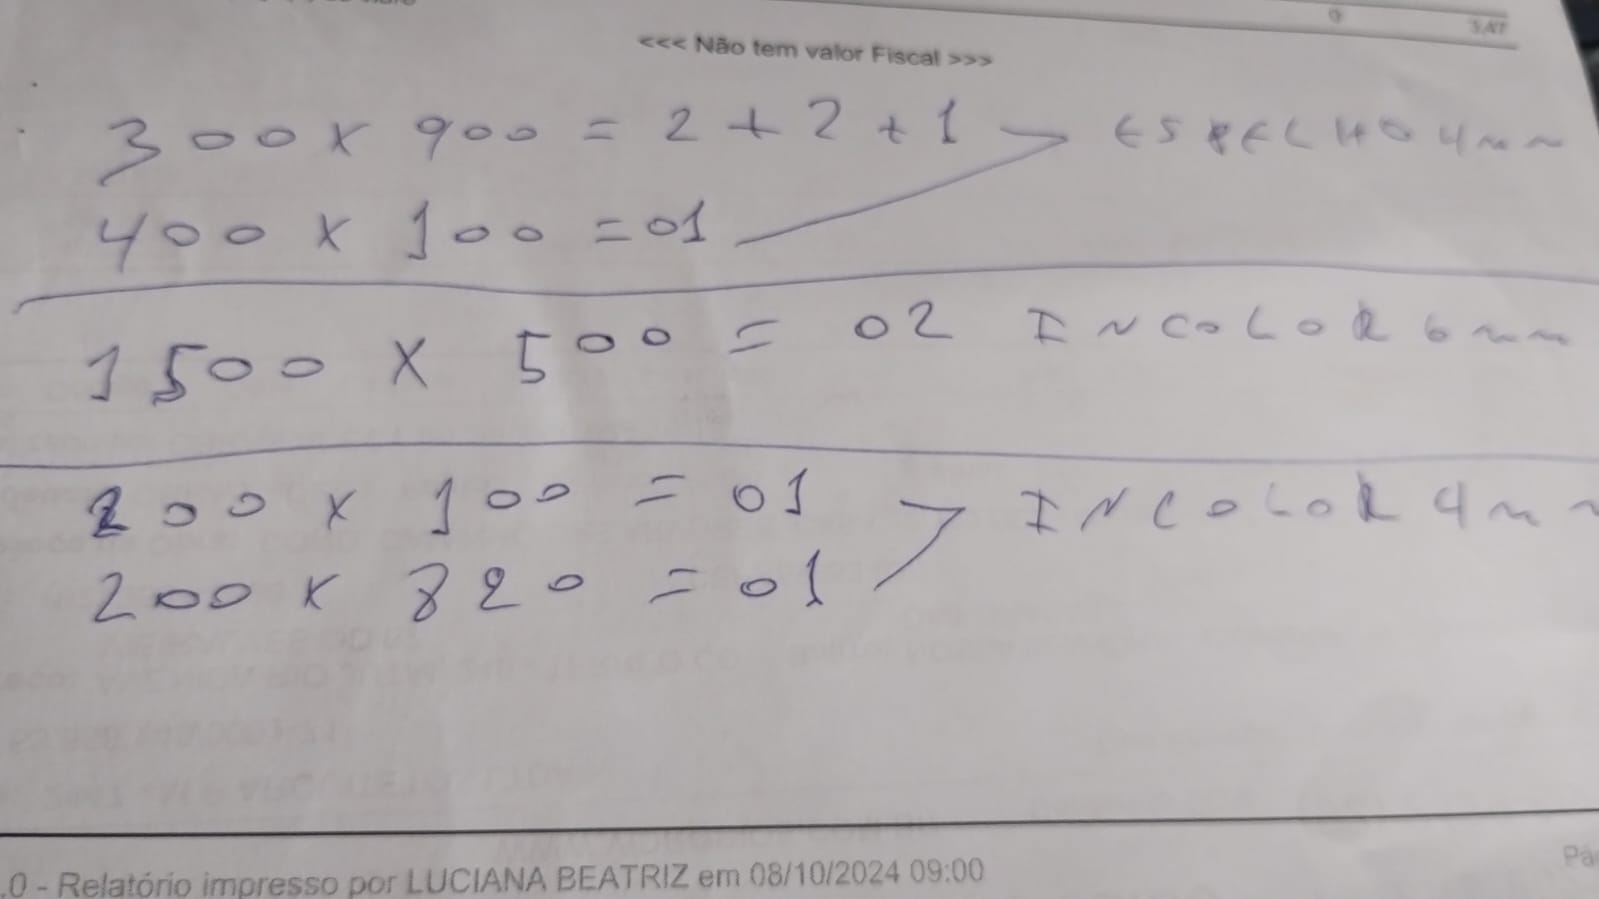 3,47
<<< Não tem valor Fiscal >>>
300 x 900 = 2 + 2 + 1 ESPELHO 4mm
400 x 100 = 01
1500 x 500 = 02 INCOLOR 6mm
200 x 100 = 01 INCOLOR 4mm
200 x 820 = 01
.0 - Relatório impresso por LUCIANA BEATRIZ em 08/10/2024 09:00
Pá